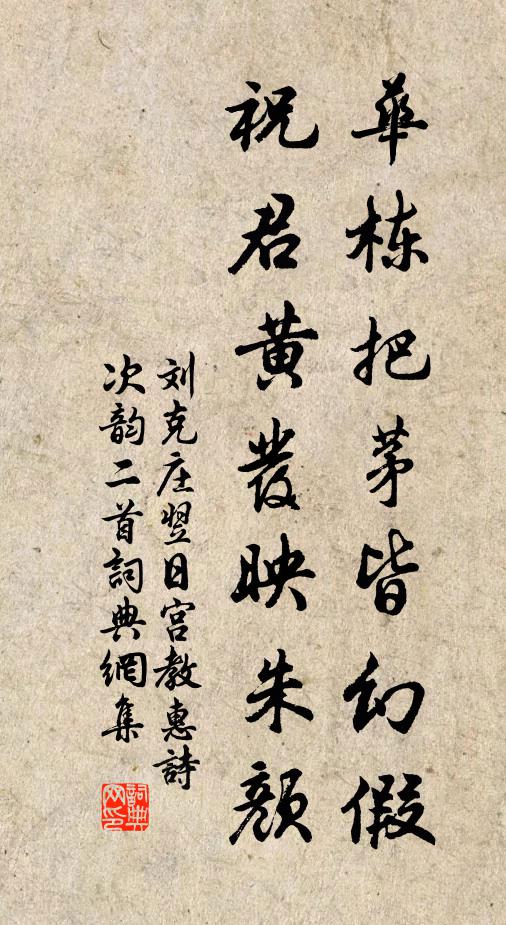 華栋把茅皆幻假
祝君黄發映朱顏
刘克庄翌日宫教惠詩
次韵二首詞典網集
詞典
网印